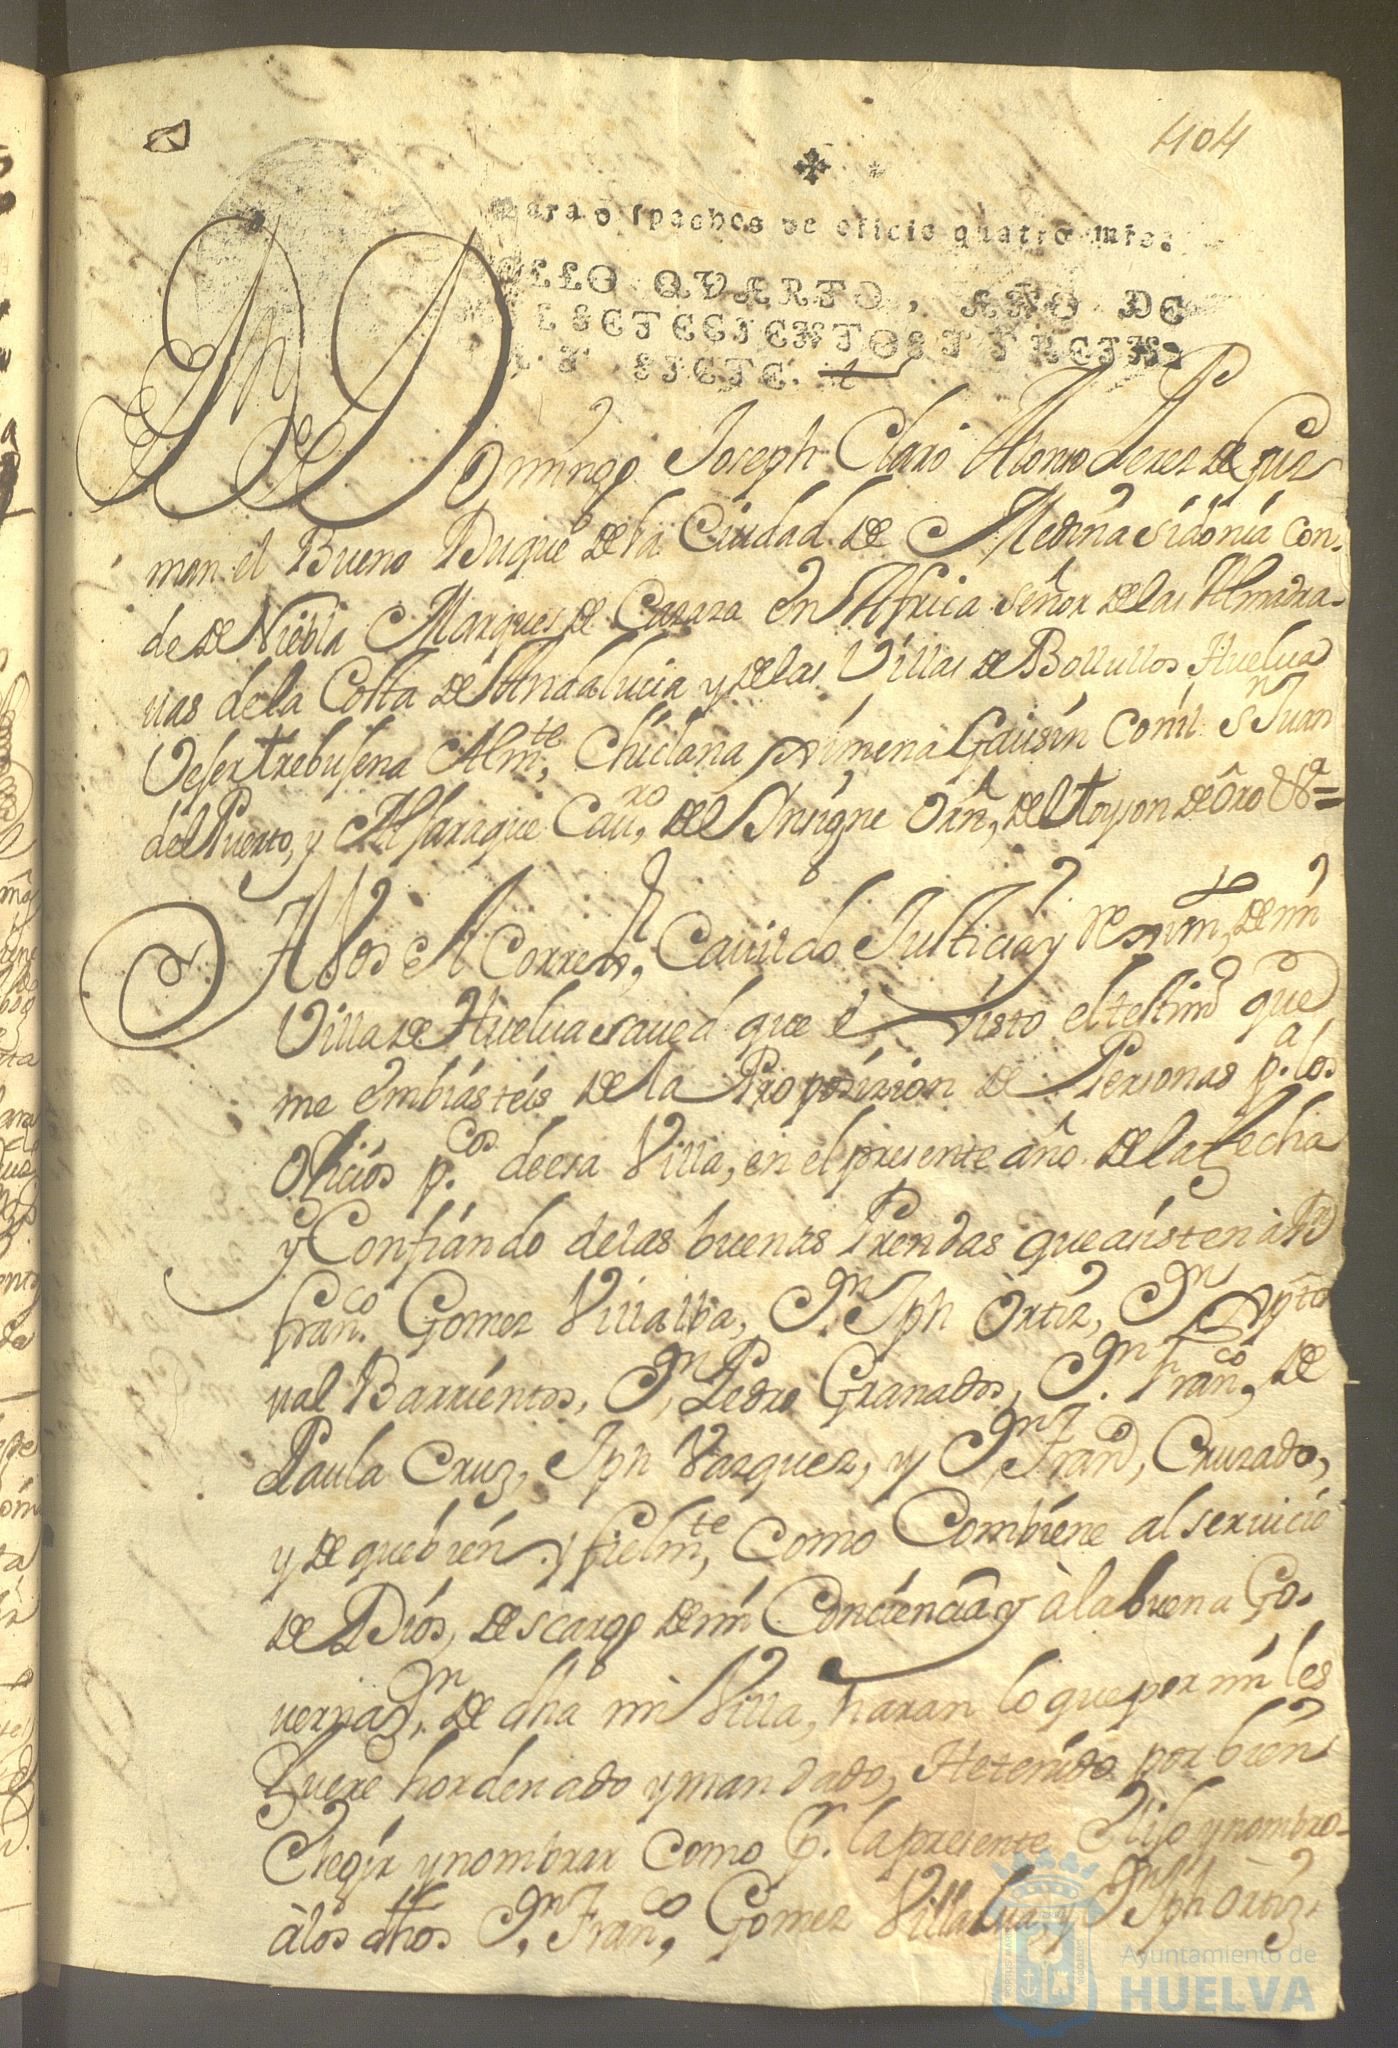 404
Para despachos de oficio quatro mrs.
SELLO QVARTO, AÑO DE
MIL SETECIENTOS Y TREIN-
TA Y SIETE.
Dn Domingo Joseph Claro Alonso Perez de Guz
man el Bueno Duque de la Ciudad de Medina Sidonia Con-
de de Niebla Marques de Cazaza en Africa Señor de las Almadra-
uas de la Costa de Andalucia y de las Villas de Bollullos Huelua
Vejer Trebujena Alm.te, Chiclana Ximena Gausin Conil Sn Juan
del Puerto, y Aljaraque Cau.ro, del Insigne Orn, del toyson de Oro &a=
A Vos el Correxr, Cauildo Justicia y reximto, de mi
Villa de Huelua saued que è visto el testimo que
me embiasteis de la Proposizion de Personas p.a los
Oficios p.cos de esa Villa, en el presente año de la fecha
y Confiando de las buenas Prendas que asisten à Dn
Fran.co Gomez Villalba, Dn. Jph Ortiz, Dn
ual Barrientos, Dn, Pedro Granados, Dn. Franco, de
Paula Cruz, Jph Vazquez, y Dn Franco, Cruzado,
y de que bien y fielm.te, como Combiene al seruicio
de Dios, descargo de mi Conciencia y à la buena Go-
uernazn. de dha mi Villa, haran lo que por mi les
fuere hordenado y mandado, He tenido por bien
Elegir y nombrar como p.r la presente Elijo y nombro
à los dhos Dn, Fran.co, Gomez Villalua, y Dn Jph Ortiz
Ayuntamiento de
HUELVA